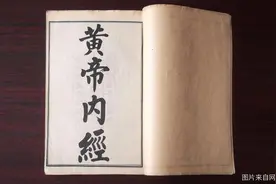 黄帝内經
图片来自网